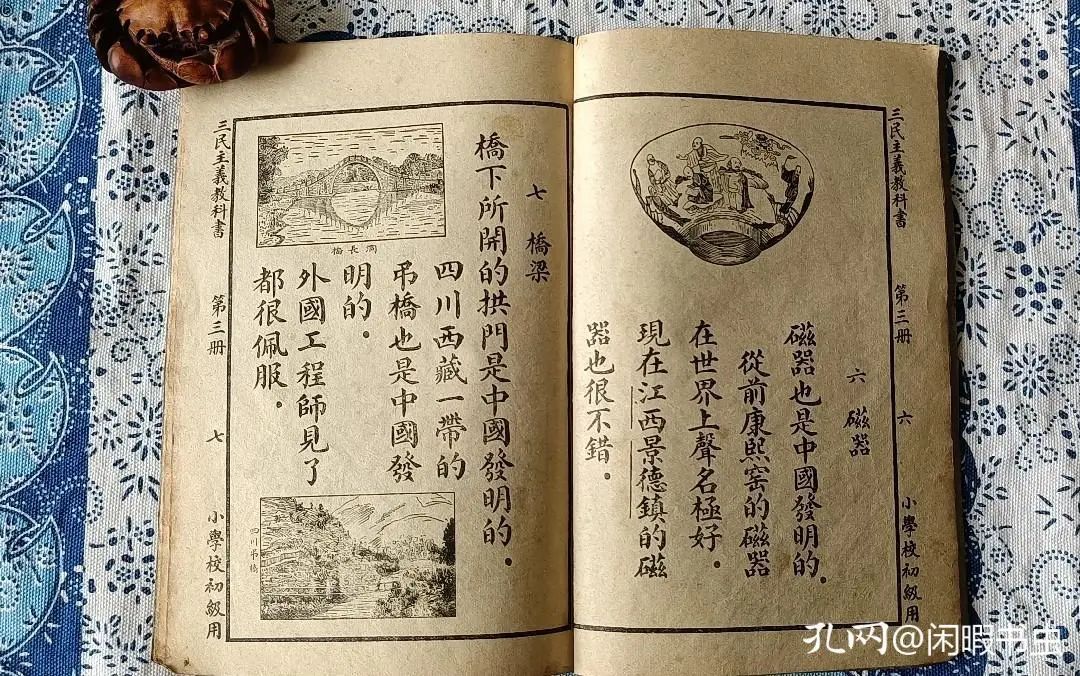 三民主義教科書　第三冊　六　小學校初級用
六　磁器
磁器也是中國發明的．
從前康熙窰的磁器
在世界上聲名極好．
現在江西景德鎮的磁
器也很不錯．
七　橋梁
橋下所開的拱門是中國發明的．
四川西藏一帶的
吊橋也是中國發
明的．
外國工程師見了
都很佩服．
橋長洞
四川吊橋
三民主義教科書　第三冊　七　小學校初級用
孔网@闲暇书虫